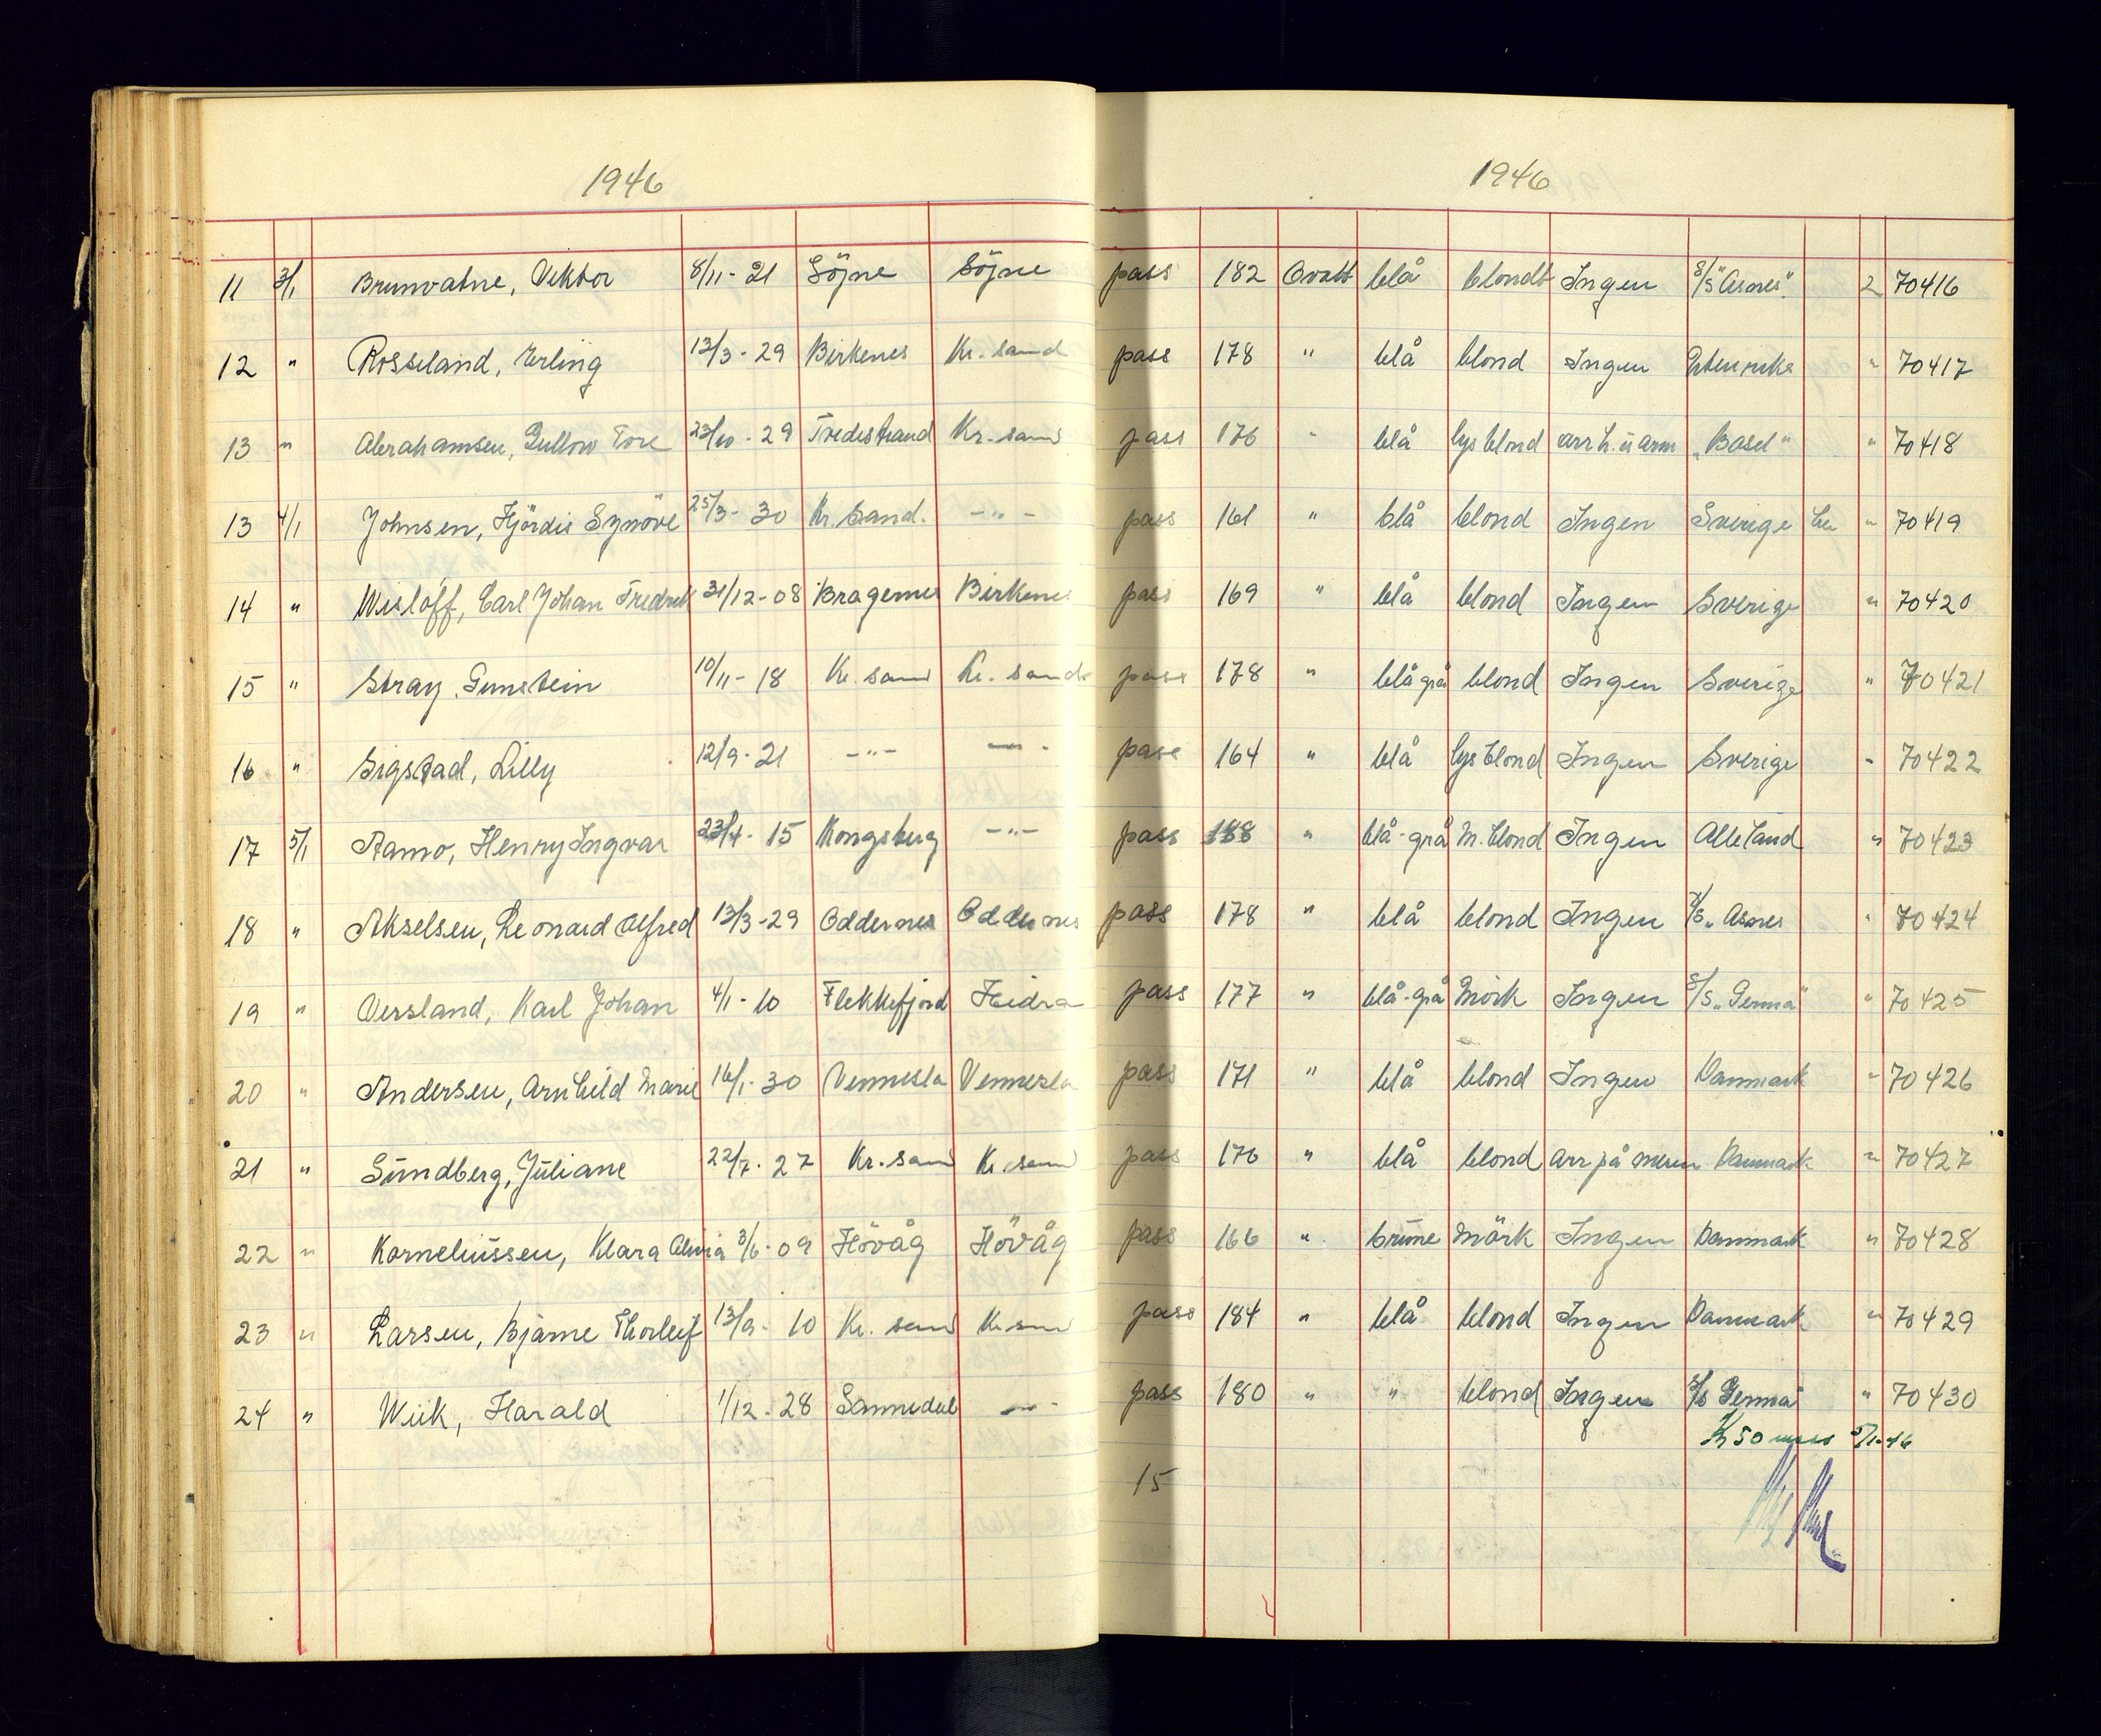 1946 1946
11 3/1 Brunvatne, Viktor 8/11-21 Söjne Söjne pass 182 Ovalt blå blondt Ingen S/S "Asnes". 2 70416
12 " Rosseland, Erling 13/3-29 Birkenes Kr.sand pass 178 " blå blond Ingen Utenriks " 70417
13 " Abrahamsen, Gullow Tore 23/10-29 Tvedestrand Kr.sand pass 176 " blå lys blond arr h. u arm "Basel" " 70418
13 4/1 Johnsen, Hjördis Synöve 25/3-30 Kr.sand. -"- pass 161 " blå blond Ingen Sverige " 70419
14 " Wislöff, Carl Johan Fredrik 31/12-08 Bragernes Birkenes pass 169 " blå blond Ingen Sverige " 70420
15 " Stray, Gunstein 10/11-18 Kr.sand Kr.sand pass 178 " blå grå blond Ingen Sverige " 70421
16 " Sigstad, Lilly 12/9-21 -"- -"- pass 164 " blå lys blond Ingen Sverige " 70422
17 5/1 Aamo, Henry Ingvar 23/4-15 Kongsberg -"- pass 188 " blå-grå M.blond Ingen Alle land " 70423
18 " Akselsen, Leonard Alfred 13/3-29 Oddernes Oddernes pass 178 " blå blond Ingen S/S "Asnes " 70424
19 " Versland, Karl Johan 4/1-10 Flekkefjord Hidra pass 177 " blå-grå Mörk Ingen S/S "Gemma" " 70425
20 " Andersen, Arnhild Marie 16/1-30 Vennesla Vennesla pass 171 " blå blond Ingen Danmark " 70426
21 " Sundberg, Juliane 22/7-27 Kr.sand Kr.sand pass 176 " blå blond arr på Danmark " 70427
22 " Korneliussen, Klara Alvia 3/6-09 Hövåg Hövåg pass 166 " brune Mörk Ingen Danmark " 70428
23 " Larsen, Bjarne Thorleif 13/9-10 Kr.sand Kr.sand pass 184 " blå blond Ingen Danmark " 70429
24 " Wiik, Harald 1/12-28 Sannidal -"- pass 180 " " blond Ingen S/S Gemma " 70430
5/1-46
15